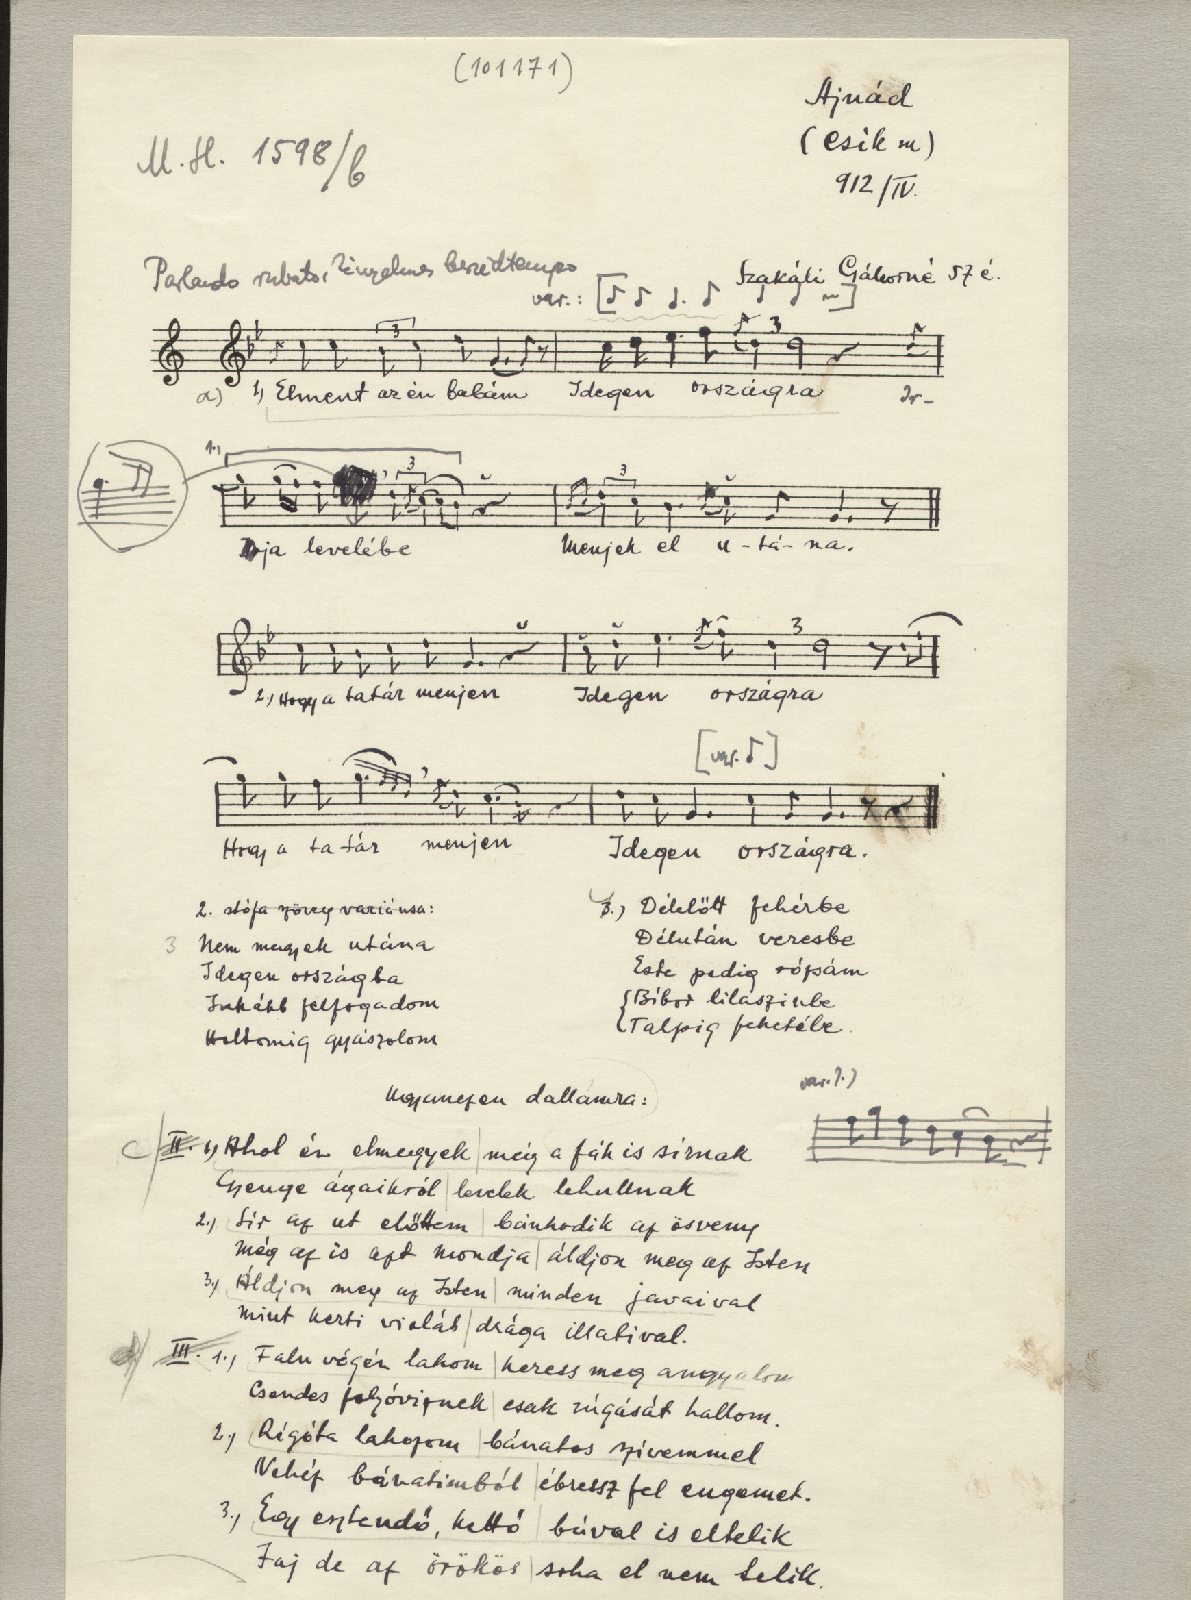 (101171)
Ajnád
(Csik m)
912/IV.
M.H. 1598/b
Parlando rubato, beszédtempo
Szakáli Gáborné 57 é.
var.:
a) 1, Elment az én babám Idegen országra Ir-
1.,
3
ja levelébe Menjek el u-tá-na.
2, Hogy a tatár menjen Idegen országra
[var. ]
Hogy a tatár menjen Idegen országra.
2. stófa szöveg variánsa:
3 Nem megyek utána
Idegen országba
Inkább felfogadom
Holtomig gyászolom
3.) Délelőtt fehérbe
Délután veresbe
Este pedig rózsám
Bíbor lilaszinbe
Talpig feketébe.
var. 1.)
Ugyanezen dallamra:
c) II. 1, Ahol én elmegyek | még a fák is sírnak
Gyenge ágaikról | levelek lehullnak
2., Sír az ut előttem | bánkodik az ösveny
Még az is azt mondja | áldjon meg az Isten
3., Áldjon meg az Isten | minden javaival
Mint kerti violát | drága illatival.
d) III. 1., Falu végén lakom | keress meg angyalom
Csendes folyóviznek | csak zúgását hallom.
2., Rigóta lakozom | bánatos szivemmel
Nehéz bánatimból | ébressz fel engemet.
3., Egy esztendő, kettő | búval is eltelik
Jaj de az örökös | soha el nem telik.